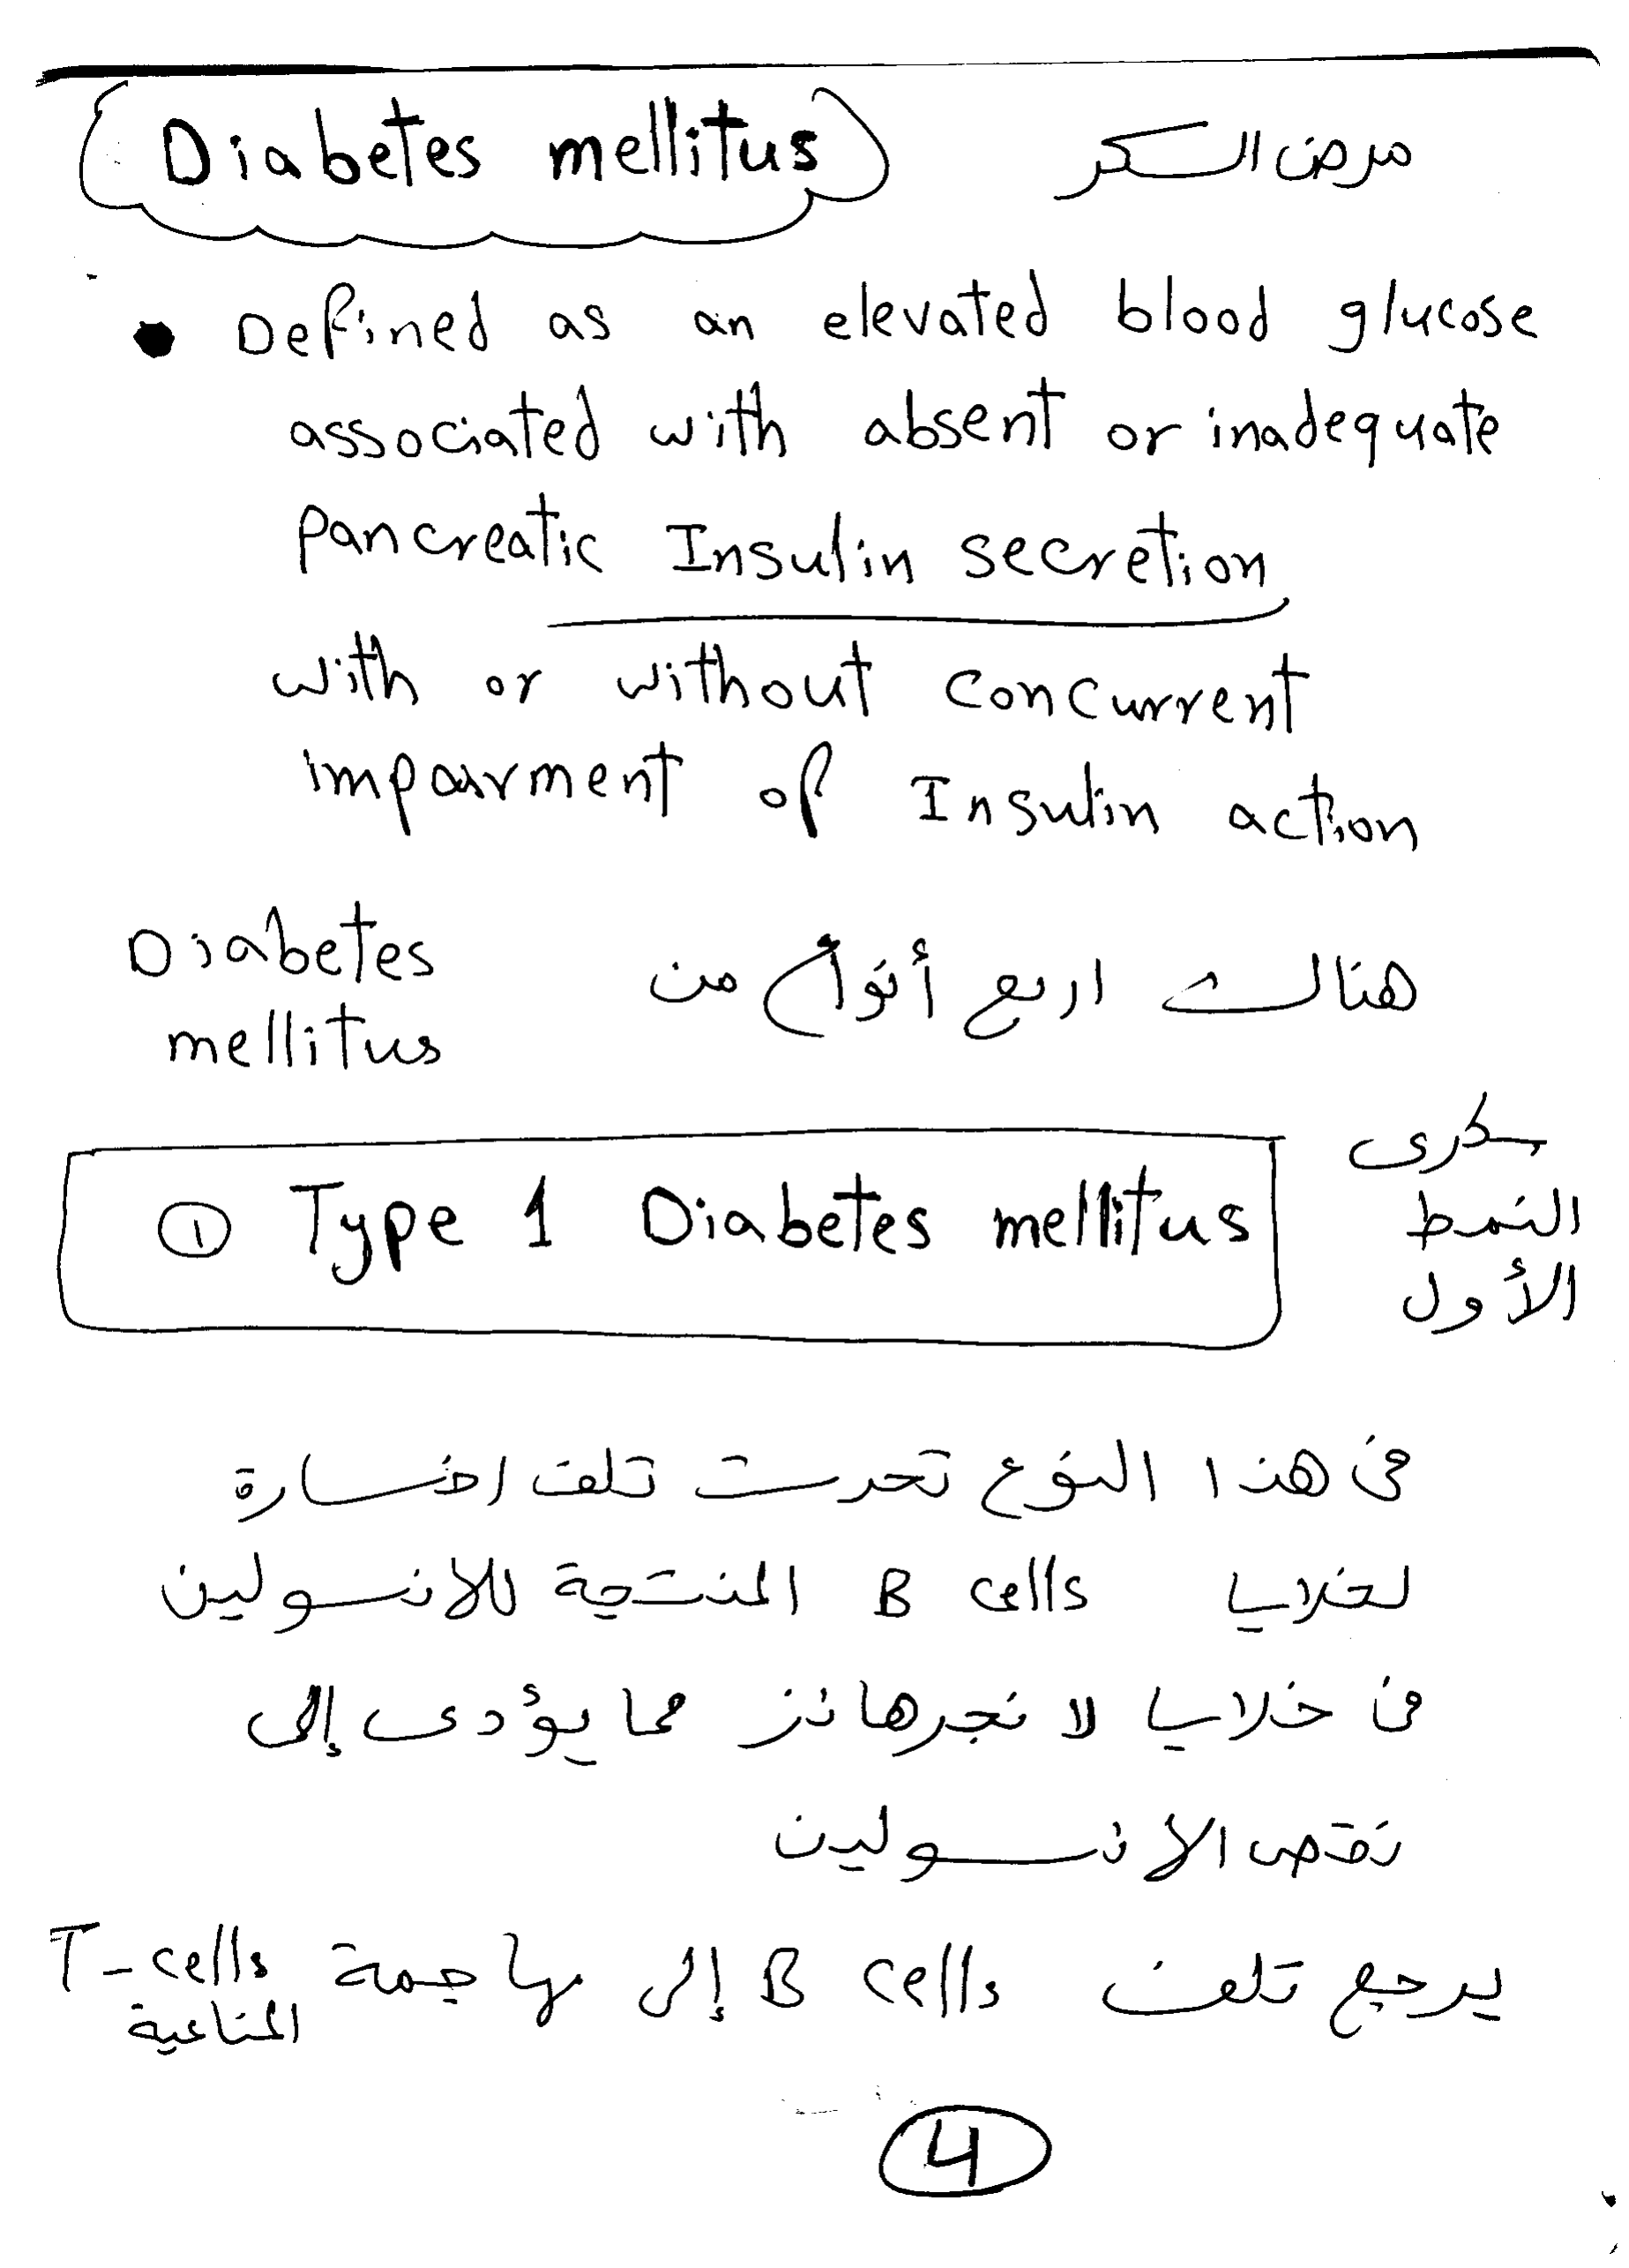 Diabetes mellitus مرض السكر
• Defined as an elevated blood glucose
associated with absent or inadequate
pancreatic Insulin secretion
with or without concurrent
impairment of Insulin action
هناك اربع أنواع من Diabetes
mellitus
سكرى
النمط
الأول
① Type 1 Diabetes mellitus
فى هذا النوع تحدث تلف / خسارة
لخلايا B cells المنتجة للانسولين
فى خلايا لانجرهانز مما يؤدى إلى
نقص الانسولين
يرجع تلف B cells إلى مهاجمة T-cells
المناعية
4